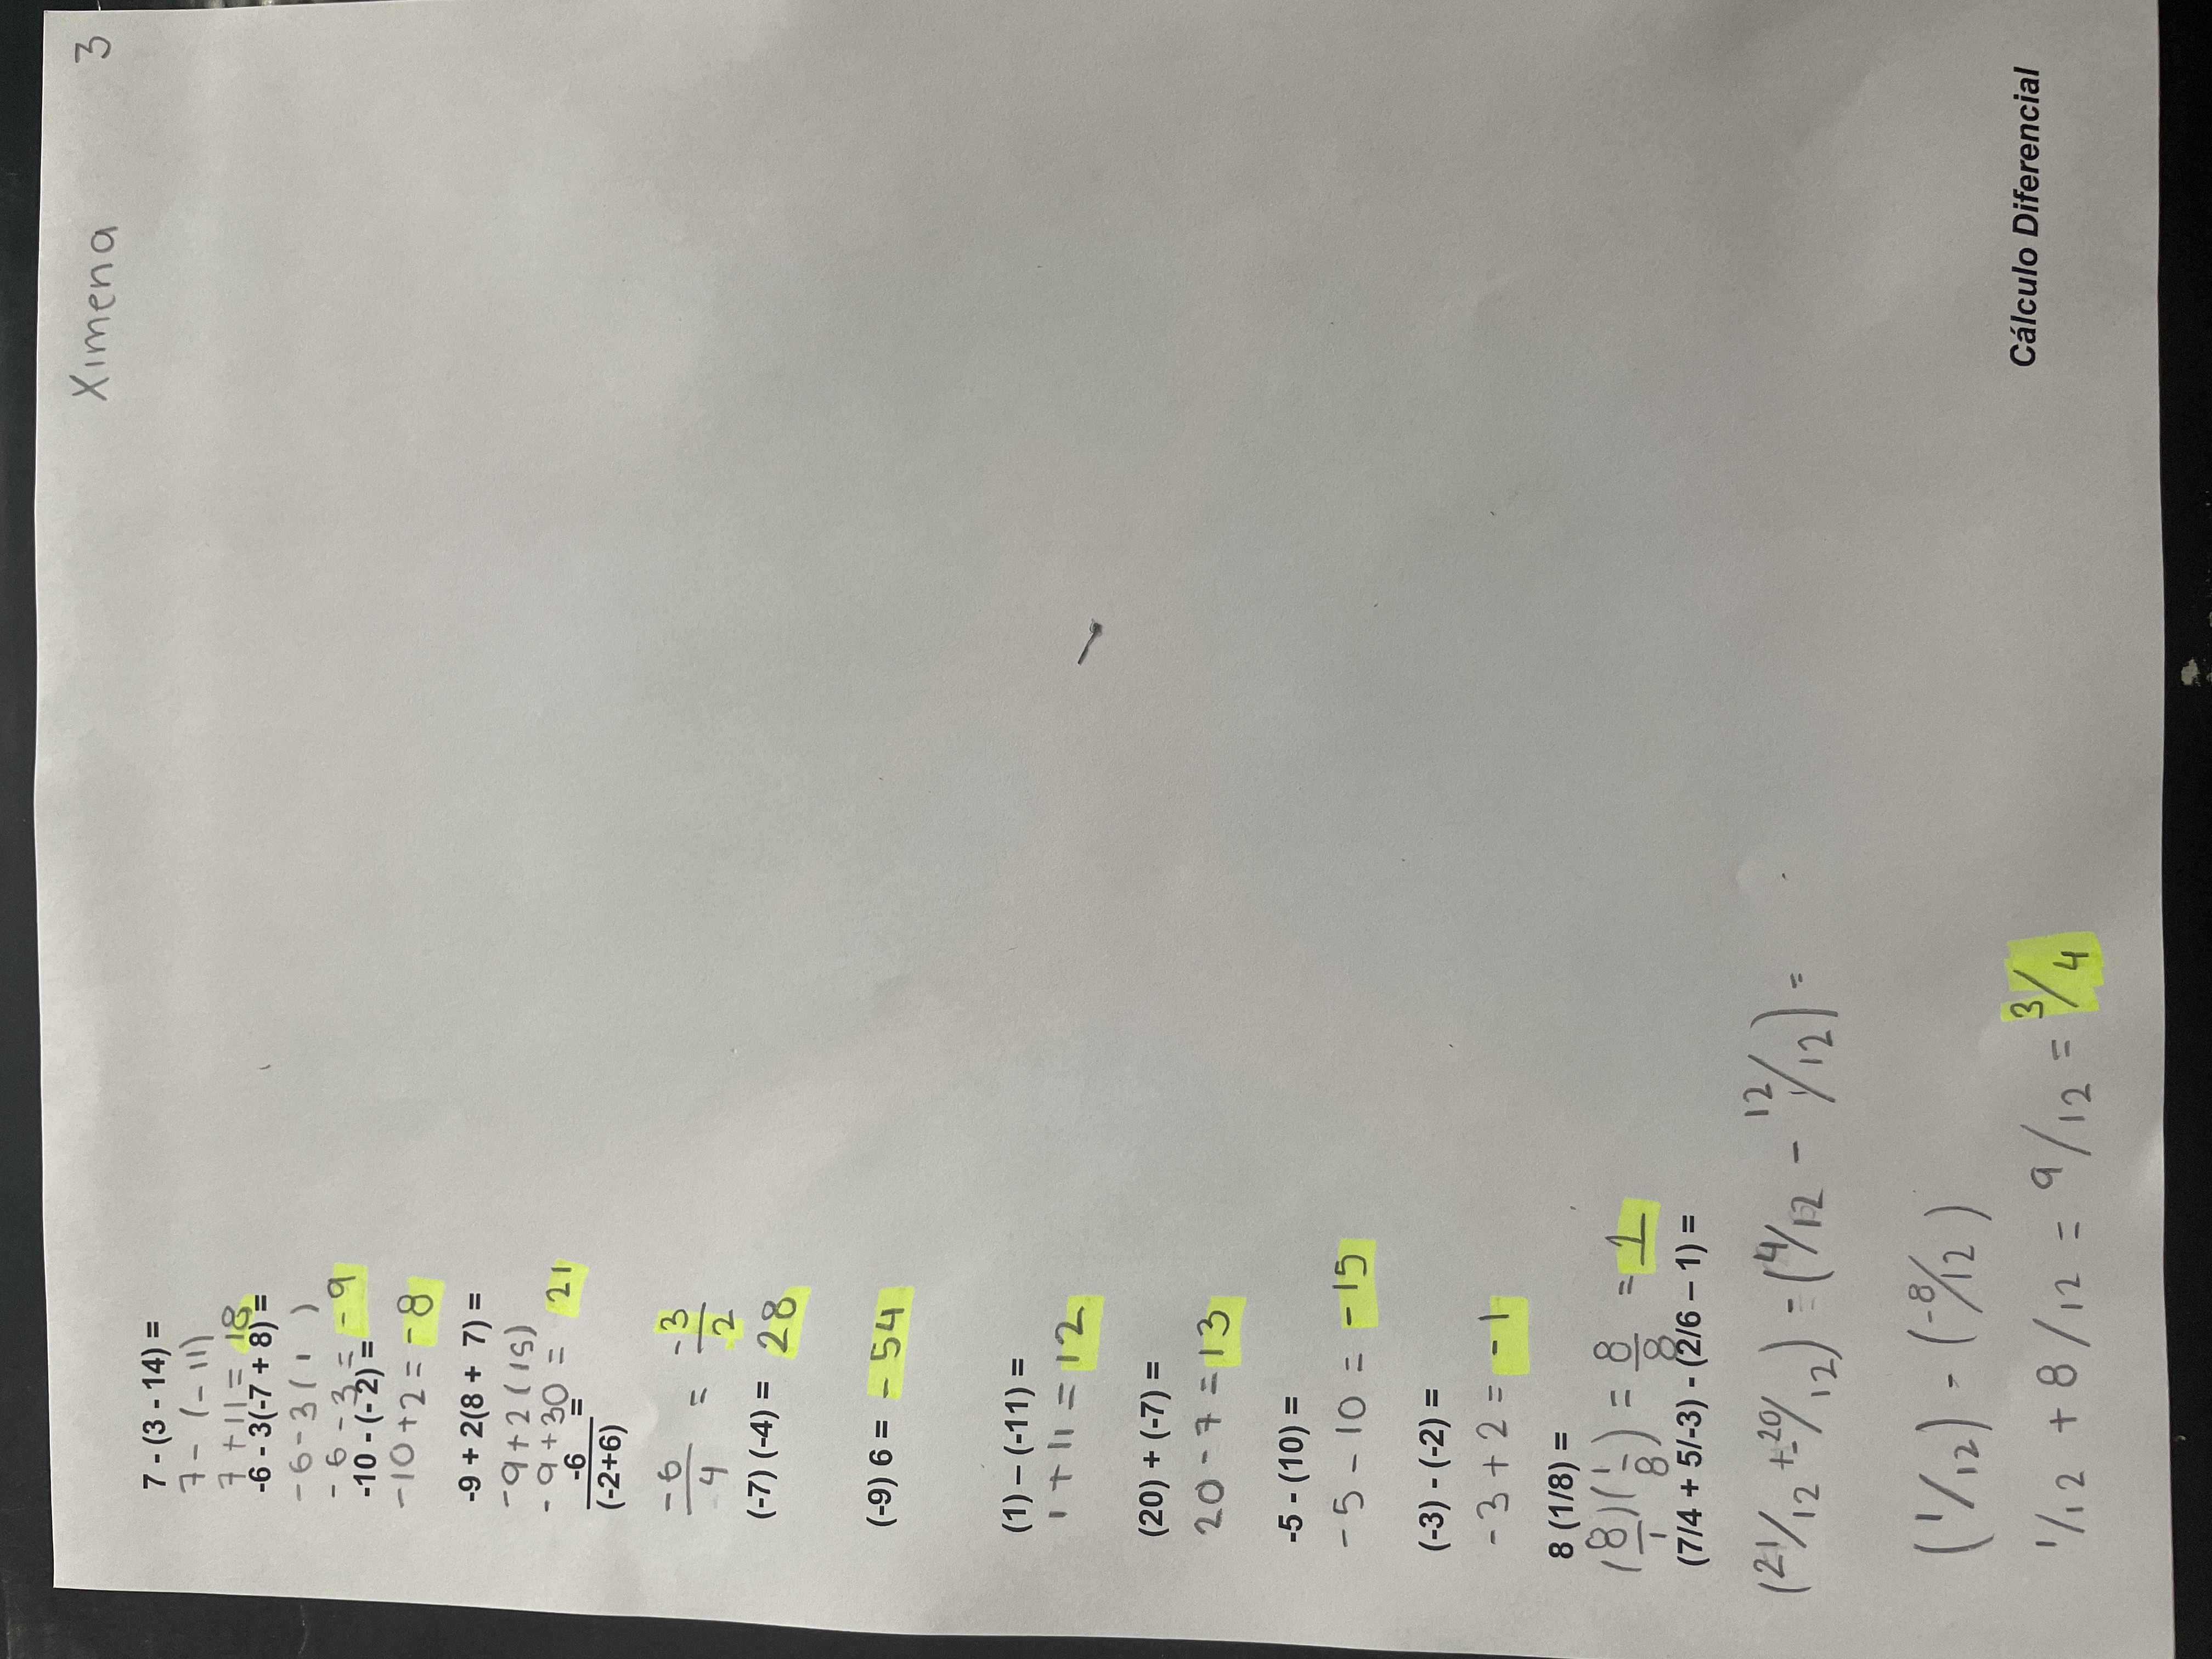 Ximena 3
7 - (3 - 14) =
7 - (-11)
7 + 11 = 18
-6 - 3(-7 + 8) =
-6 - 3(1)
-6 - 3 = -9
-10 - (-2) =
-10 + 2 = -8
-9 + 2(8 + 7) =
-9 + 2(15)
-9 + 30 = 21
-6 =
(-2+6)
-6/4 = -3/2
(-7) (-4) = 28
(-9) 6 = -54
(1) – (-11) =
1 + 11 = 12
(20) + (-7) =
20 - 7 = 13
-5 - (10) =
-5 - 10 = -15
(-3) - (-2) =
-3 + 2 = -1
8 (1/8) =
(8/1)(1/8) = 8/8 = 1
(7/4 + 5/-3) - (2/6 – 1) =
(21/12 + -20/12) = (4/12 - 12/12) =
(1/12) - (-8/12)
1/12 + 8/12 = 9/12 = 3/4
Cálculo Diferencial